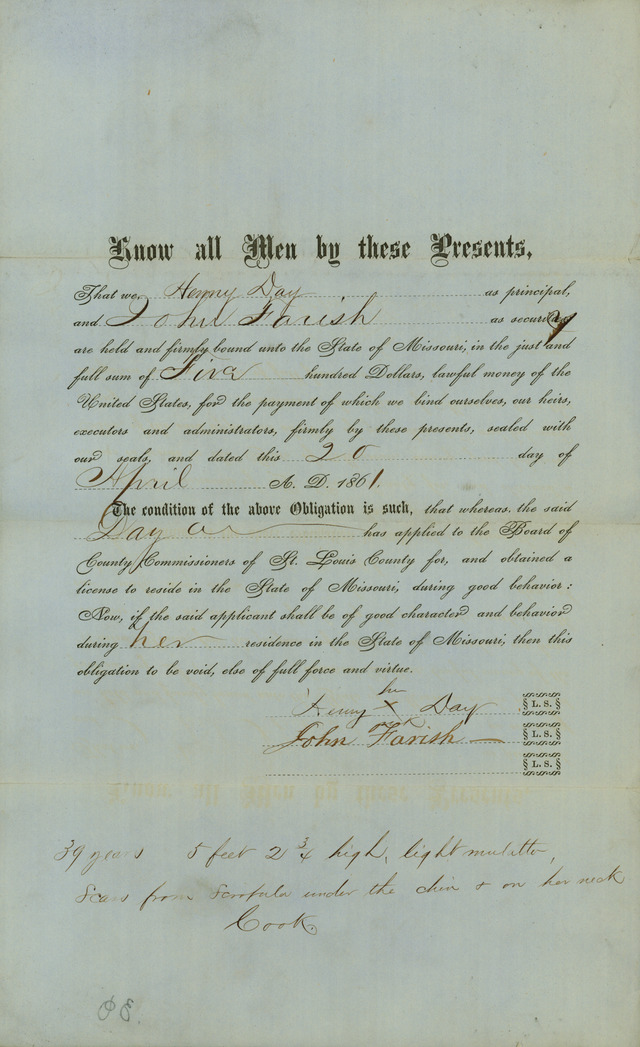 Know all Men by these Presents,
That we, Henny Day as principal,
and John Farish as security
are held and firmly bound unto the State of Missouri, in the just and
full sum of Five hundred Dollars, lawful money of the
United States, for the payment of which we bind ourselves, our heirs,
executors and administrators, firmly by these presents, sealed with
our seals, and dated this 20 day of
April A. D. 1861.
The condition of the above Obligation is such, that whereas, the said
Day has applied to the Board of
County Commissioners of St. Louis County for, and obtained a
license to reside in the State of Missouri, during good behavior:
Now, if the said applicant shall be of good character and behavior
during her residence in the State of Missouri, then this
obligation to be void, else of full force and virtue.
her
Henny X Day § L. S. §
John Farish § L. S. §
§ L. S. §
39 years 5 feet 2 3/4 high, light mulatto,
Scars from Scrofula under the chin & on her neck
Cook.